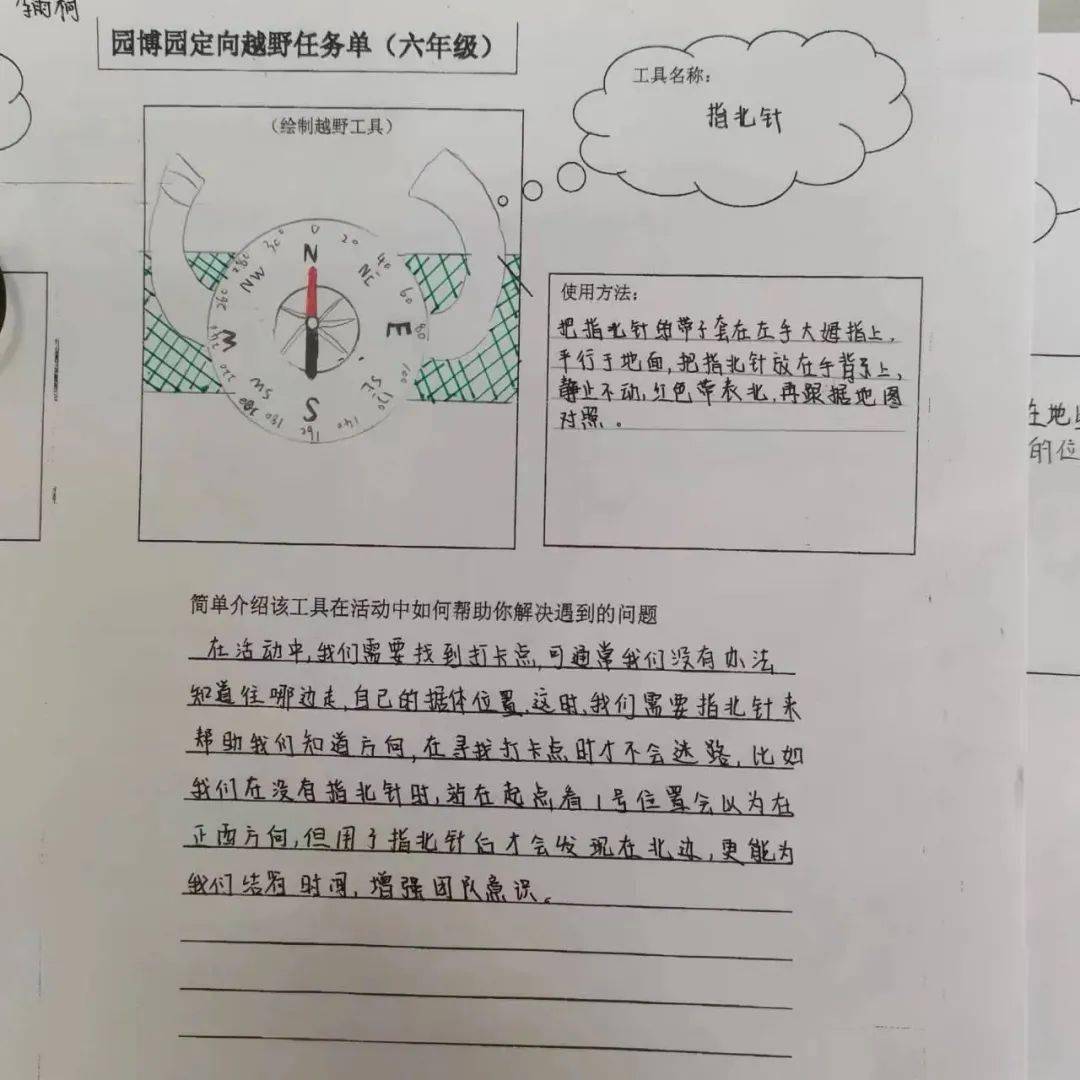 园博园定向越野任务单（六年级）
工具名称：
指北针
（绘制越野工具）
0
20
40
60
80
100
120
140
160
180
200
220
240
260
280
300
N
NE
E
SE
S
SW
W
NW
使用方法：
把指北针绳带子套在左手大姆指上，
平行于地面，把指北针放在手背上，
静止不动，红色带表北，再跟据地图
对照。
简单介绍该工具在活动中如何帮助你解决遇到的问题
在活动中，我们需要找到打卡点，可通常我们没有办法
知道往哪边走，自己的据体位置，这时，我们需要指北针来
帮助我们知道方向，在寻找打卡点时才不会迷路，比如
我们在没有指北针时，站在起点看1号位置会以为在
正西方向，但用了指北针后才会发现在北边，更能为
我们结省时间，增强团队意识。
在地
的位